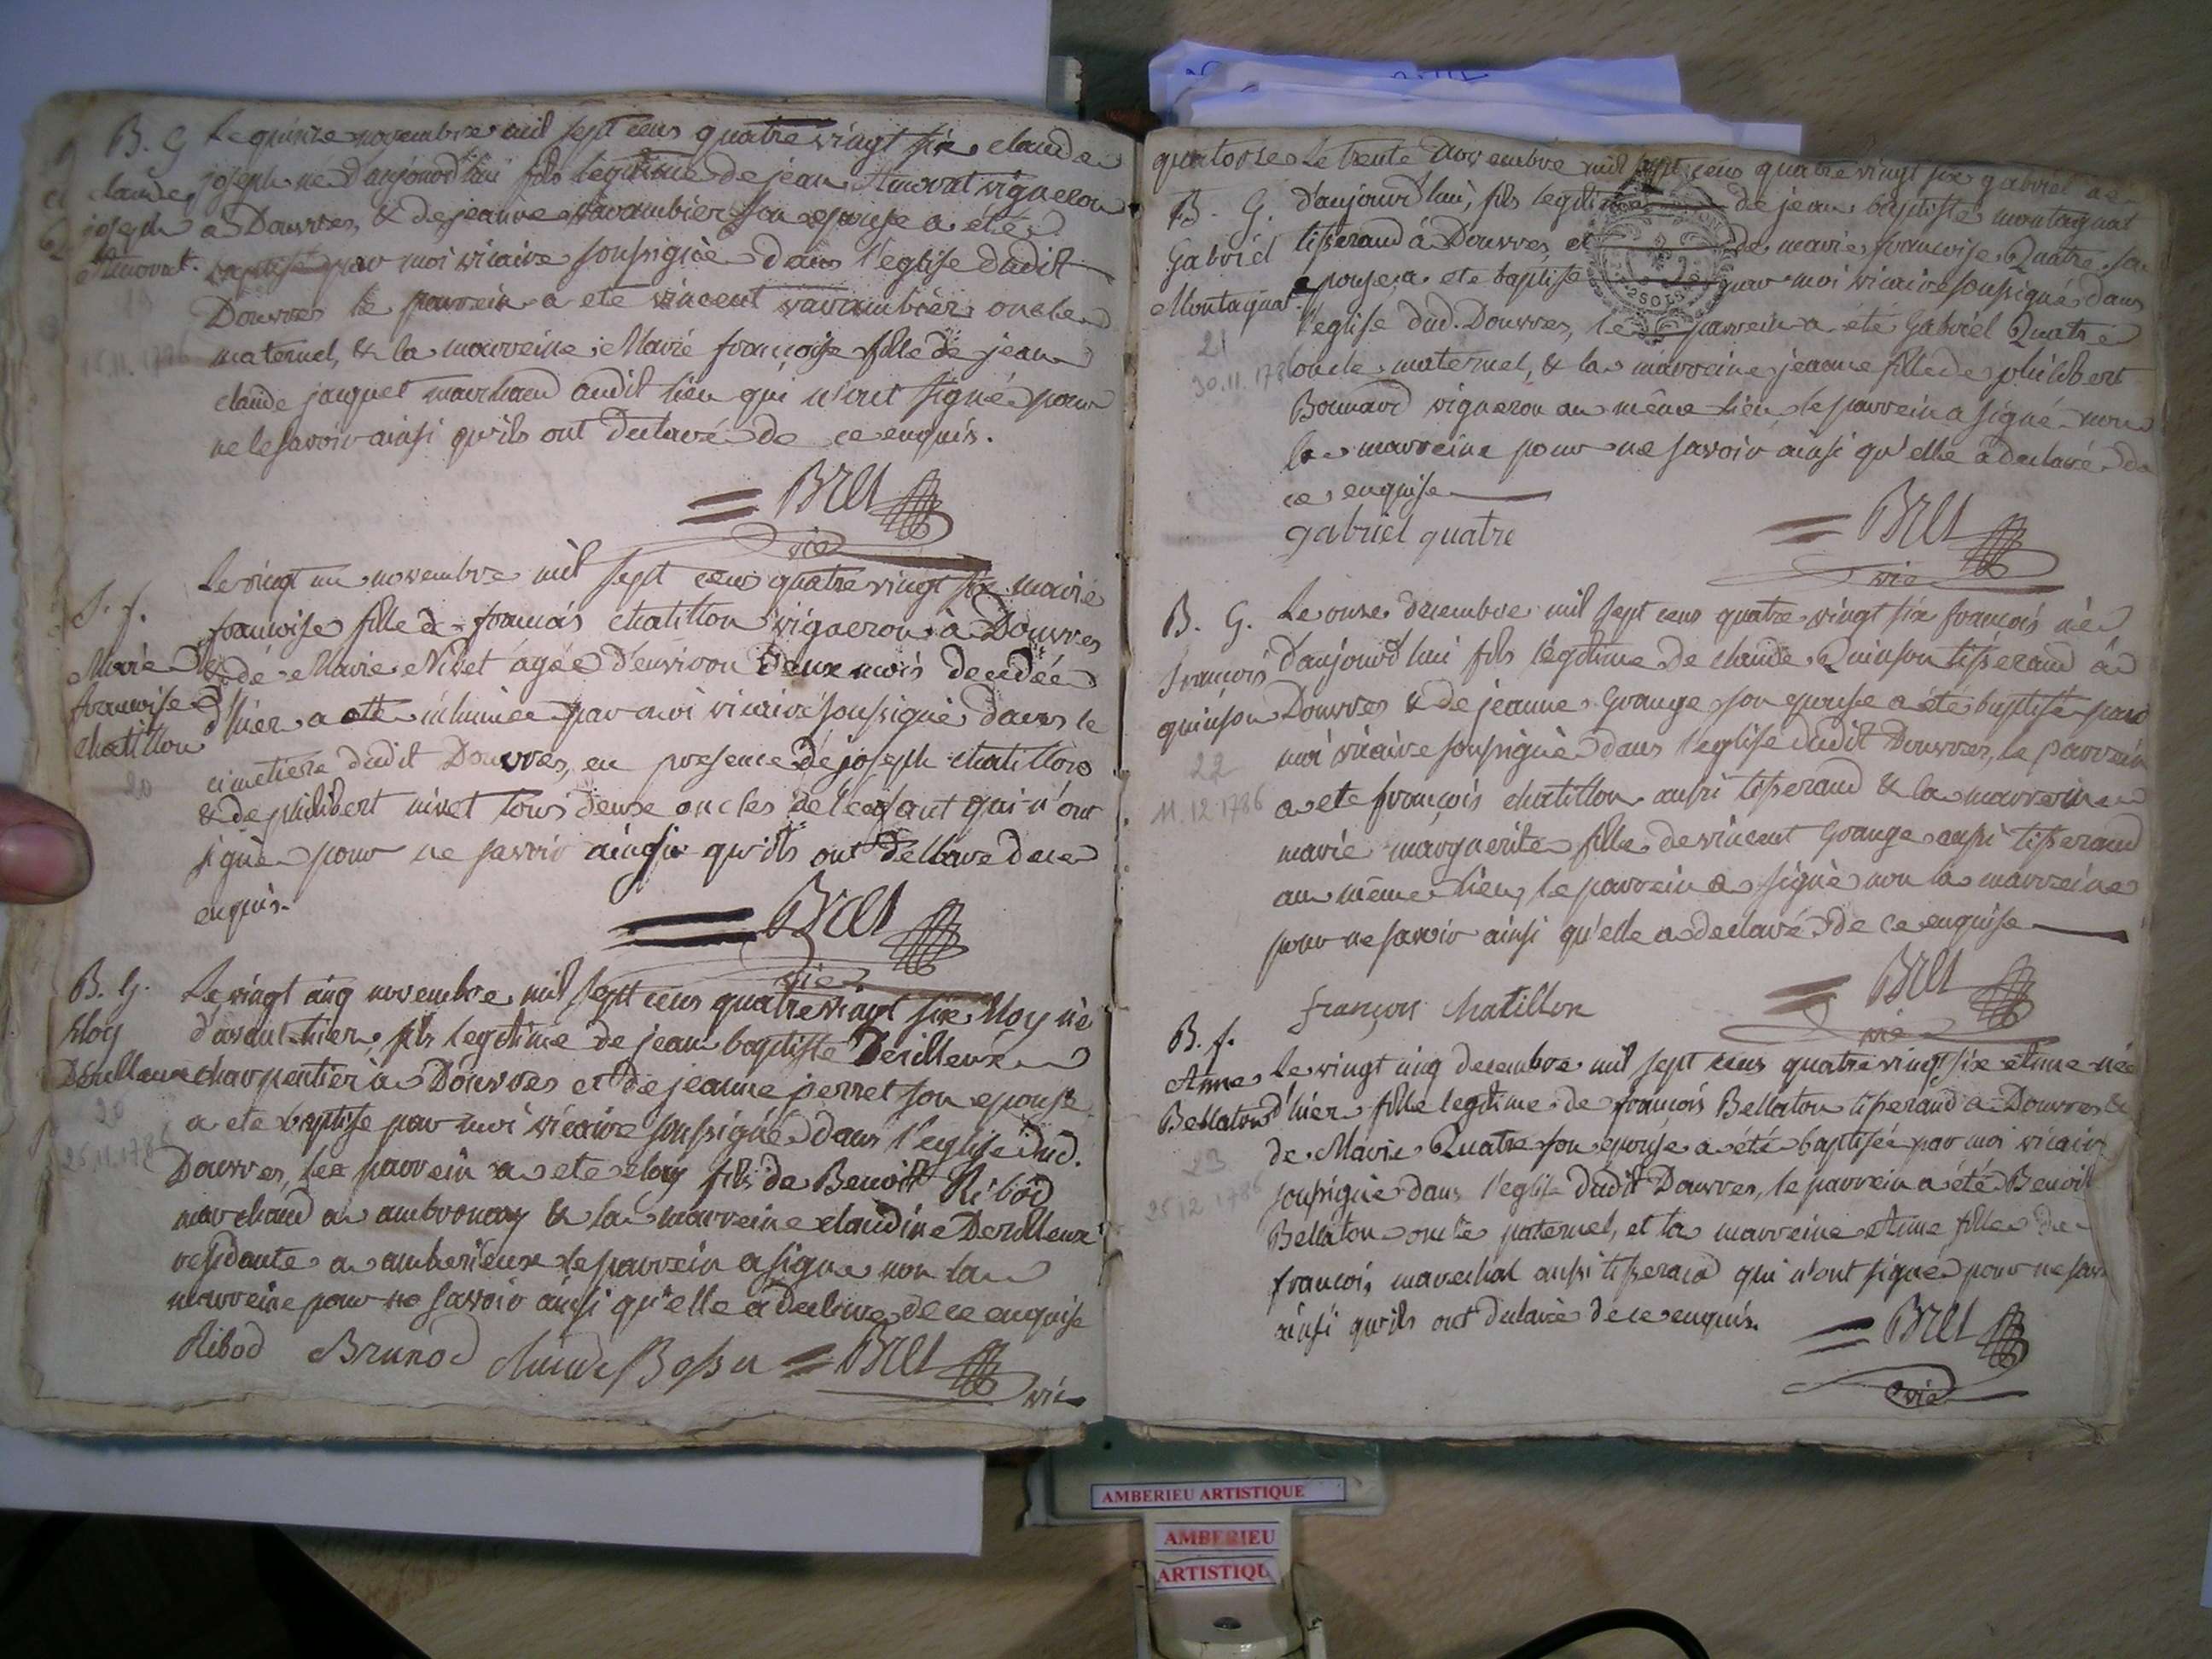 B. G Le quinze novembre mil sept cens quatre vingt six claude
claude joseph né d'aujourd'hui fils legitime de jean Amorat vigneron
joseph à Douvres, & de jeanne varambier son epouse a eté
Amorat. baptisé par moi vicaire soussigné dans l'eglise dudit
Douvres le parrein a eté vincent varambier oncle
15.11.1786
maternel, & la marreine Marie françoise fille de jean
claude jacquet marchand audit lieu qui n'ont signé pour
ne le savoir ainsi qu'ils ont declaré de ce enquis.
= Bret
vic
S. f. Le vingt un novembre mil sept cens quatre vingt six marie
françoise fille de françois chatillon vigneron à Douvres
Marie & de Marie Nivet agée d'environ deux mois decedée
françoise d'hier a eté inhumée par moi vicaire soussigné dans le
chatillon
cimetiere dudit Douvres, en presence de joseph chatillon
20
& de philibert nivet tous deux oncles de l'enfant qui n'ont
signé pour ne savoir ainsi qu'ils ont declaré de ce
enquis.
= Bret
vic
B. G. Le vingt cinq novembre mil sept cens quatre vingt six Eloy né
Eloy d'avant hier, fils legitime de jean baptiste Derilleux
Derilleux charpentier à Douvres et de jeanne perret son epouse
a eté baptisé par moi vicaire soussigné dans l'eglise dud.
25.11.1786
Douvres, le parrein a eté eloy fils de Benoit Ribod
marchand a ambronay & la marreine claudine Derilleux
residante a amberieux le parrein a signé non la
marreine pour ne savoir ainsi qu'elle a declaré de ce enquise
Ribod Brunod claude Bossu = Bret
vic
quatorze Le trente Novembre mil sept cens quatre vingt six gabriel né
B. G. d'aujourd'hui, fils legitime de jean baptiste montagnat
Gabriel tisserand à Douvres, et de marie françoise Quatre sa
Montagnat epouse, a eté baptisé par moi vicaire soussigné dans
l'eglise dud. Douvres, le parrein a eté Gabriel Quatre
21
30.11.1786 oncle maternel, & la marreine jeanne fille de philibert
Bonnard vigneron au même lieu, le parrein a signé non
la marreine pour ne savoir ainsi qu'elle a declaré de
ce enquise
gabriel quatre
= Bret
vic
B. G. Le onze decembre mil sept cens quatre vingt six françois né
François d'aujourd'hui fils legitime de claude Quinson tisserand à
quinson Douvres & de jeanne Grange son epouse a été baptisé par
moi vicaire soussigné dans l'eglise dudit Douvres, le parrein
22
11.12.1786 a eté françois chatillon aussi tisserand & la marreine
marie marguerite fille de vincent Grange aussi tisserand
au même lieu, le parrein a signé non la marreine
pour ne savoir ainsi qu'elle a declaré de ce enquise
françois chatillon
= Bret
vic
B. f.
Anne Le vingt cinq decembre mil sept cens quatre vingt six Anne née
Bellaton d'hier fille legitime de françois Bellaton tisserand à Douvres &
de Marie Quatre son epouse a été baptisée par moi vicaire
23
25.12.1786 soussigné dans l'eglise dudit Douvres, le parrein a été Benoit
Bellaton oncle paternel, et la marreine Anne fille de
françois marechal aussi tisserand qui n'ont signé pour ne sav
ainsi qu'ils ont declaré de ce enquis.
= Bret
vic
AMBERIEU ARTISTIQUE
AMBERIEU
ARTISTIQU